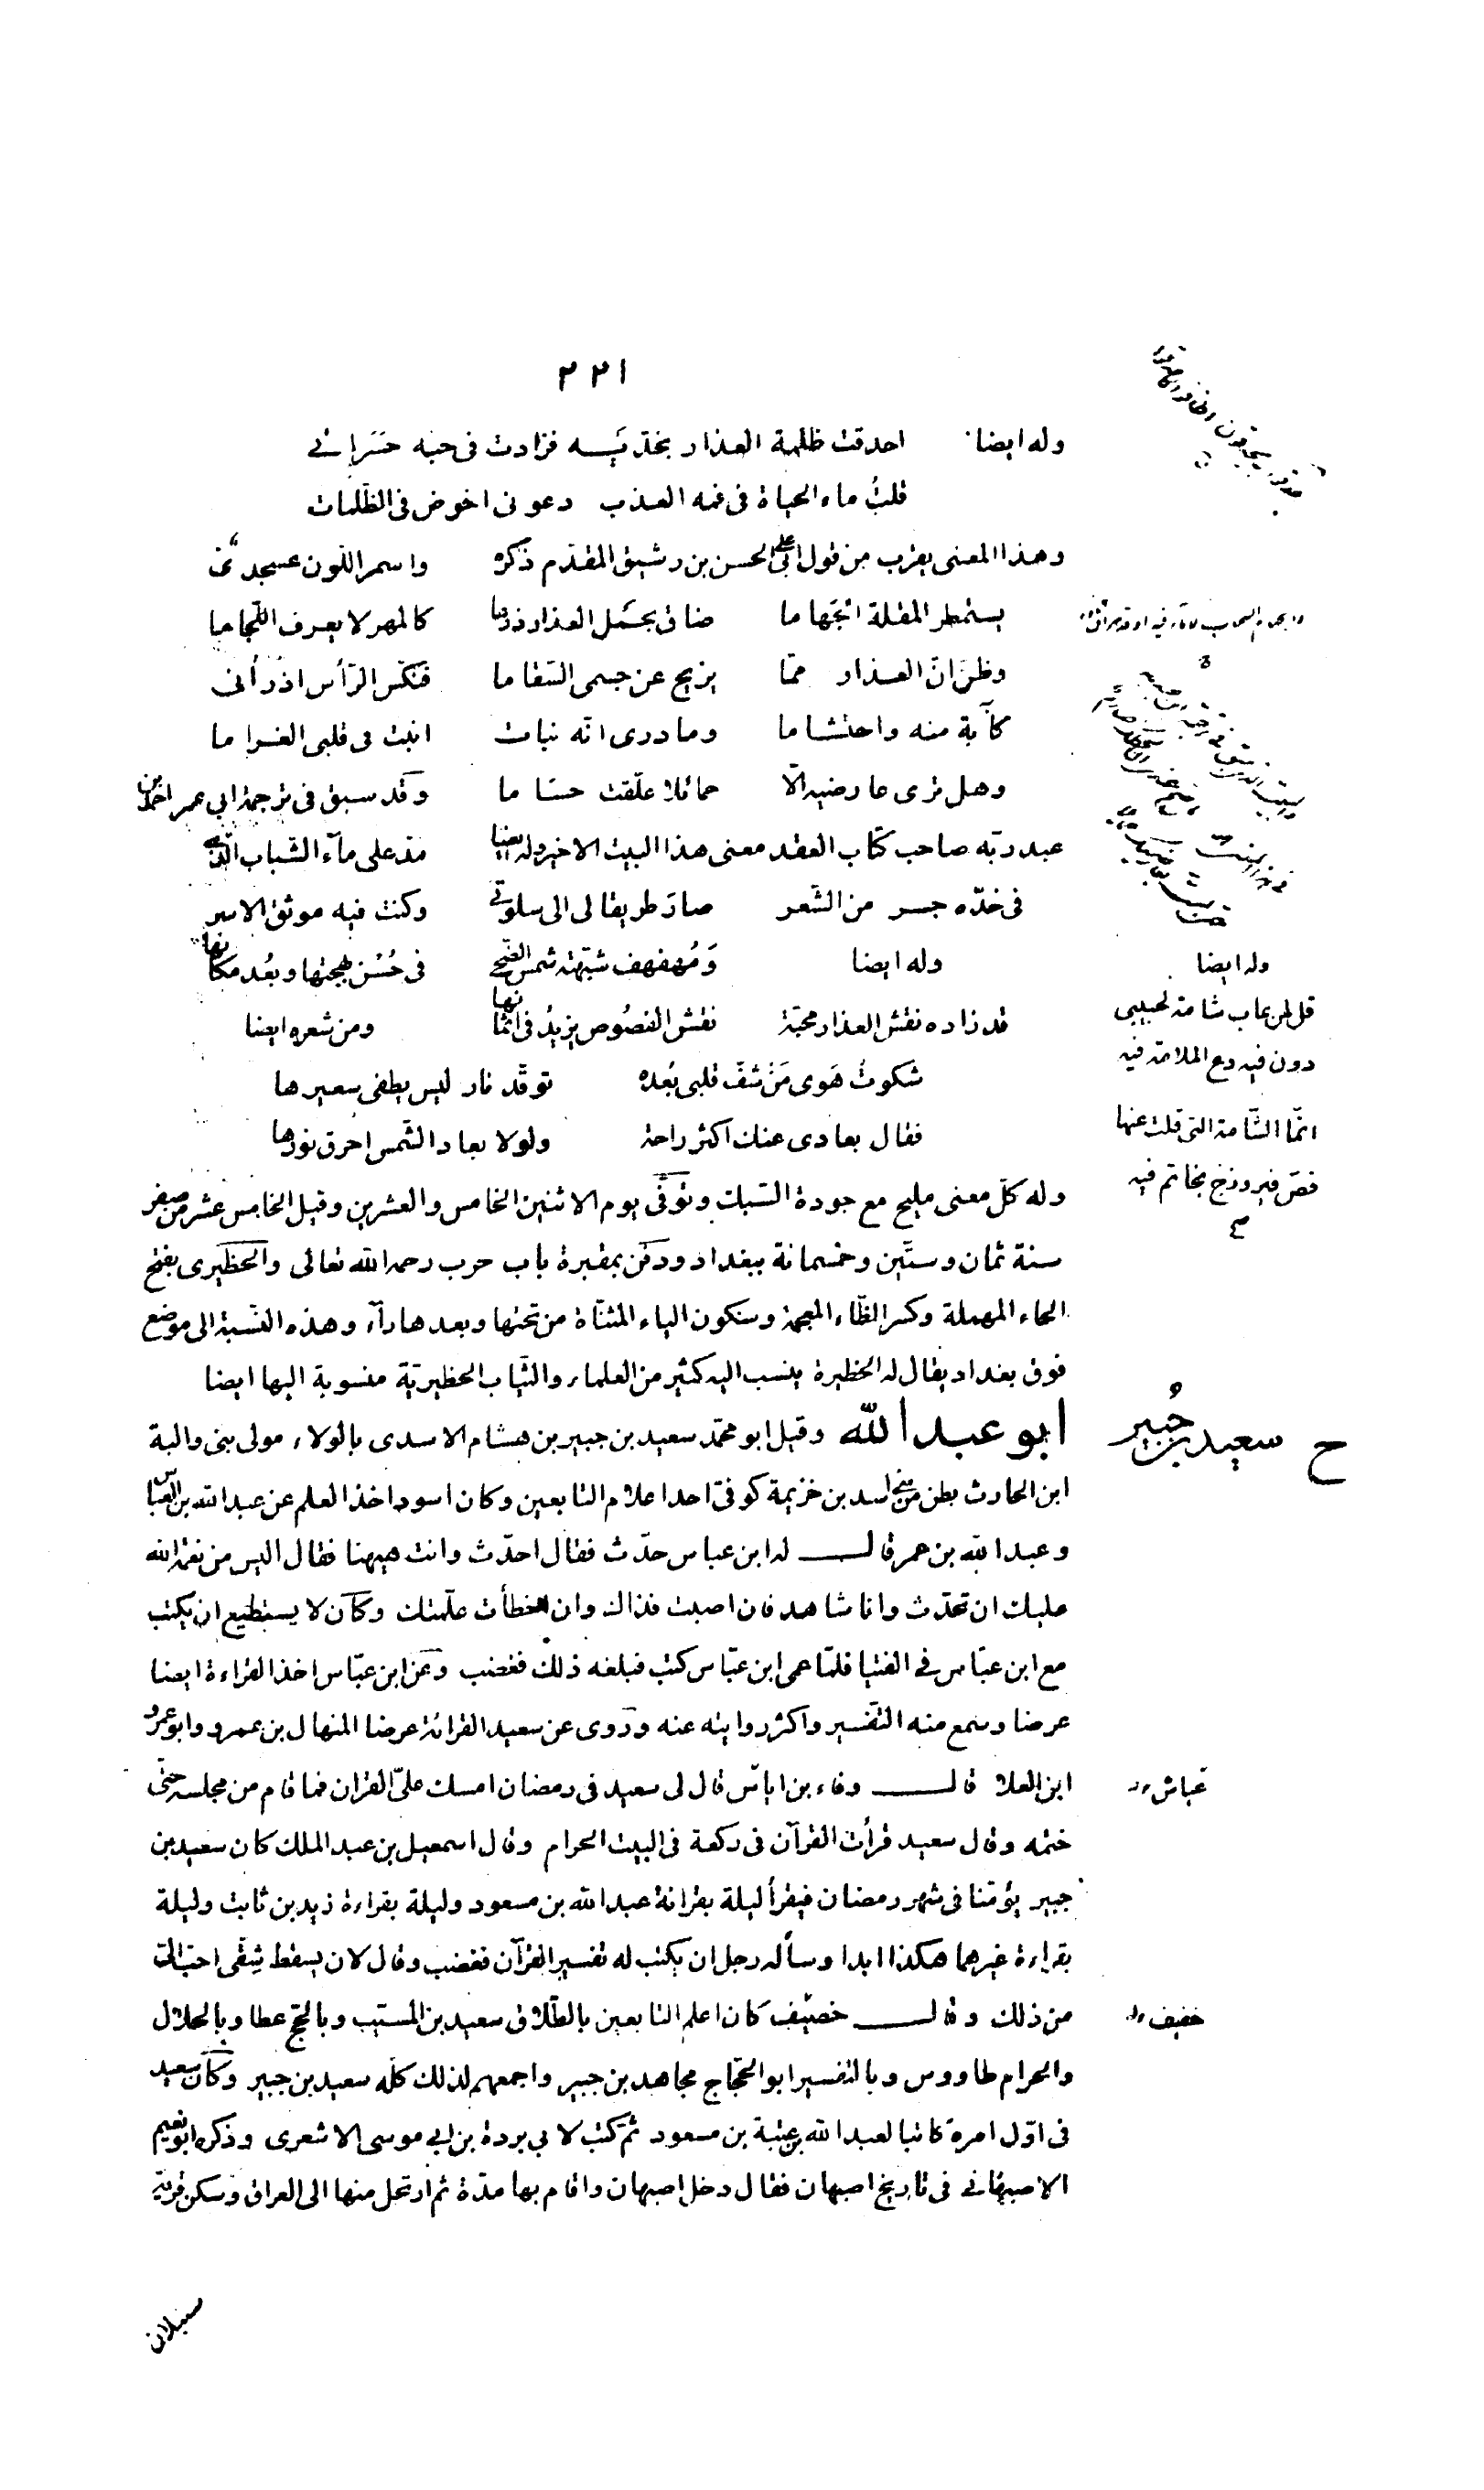 ٢٢١
وله ايضا احدقت ظلمة العذار بخدّيه فزادت فى حبه حسراتى
قلتُ ماء الحياة فى فمه العذب دعونى اخوض فى الظلمات
وهذا المعنى يقرب من قول ابى على الحسن بن رشيق المقدّم ذكره واسمر اللون عسجدىّ
يستمطر المقلة الجهاما ضاق بحمل العذار ذرعا كالمهر لا يعرف اللّجاما
وظنّ انّ العذار ممّا يزيح عن جسمى السّقاما فنكّس الرّأس اذ رأنى
كآبة منه واحتشاما وما درى انّه نبات انبت فى قلبى الغراما
وهل ترى عارضيه الّا حمائلا علّقت حساما وقد سبق فى ترجمة ابى عمر احمد بن
عبد ربّه صاحب كتاب العقد معنى هذا البيت الاخير وله ايضا مدّ على مآء الشّباب الّذى
فى خدّه جسر من الشّعر صار طريقا لى الى سلوتى وكنت فيه موثق الاسر
وله ايضا وَمُهفهف شبّهته شمس الضّحى فى حُسْن بهجتها وبُعد مكانها
قد زاده نقش العذار محبّة نقش الفصُوص يزيدُ فى اثمانها ومن شعره ايضا
شكوتُ هَوى مَنْ شفّ قلبى بُعده توقّد نار ليس يطفى سعيرها
فقال بعادى عنك اكثر راحة ولولا بعاد الشّمس احرق نورها
وله كلّ معنى مليح مع جودة السّبك وتوفّى يوم الاثنين الخامس والعشرين وقيل الخامس عشر من صفر
سنة ثمان وستّين وخمسمائة ببغداد ودفن بمقبرة باب حرب رحمه الله تعالى والحظيرى بفتح
الحاء المهملة وكسر الظّاء المعجمة وسكون الياء المثنّاة من تحتها وبعدها رآء وهذه النّسبة الى موضع
فوق بغداد يقال له الحظيرة ينسب اليه كثير من العلماء والثّياب الحظيريّة منسوبة اليها ايضا
ابو عبد الله وقيل ابو محمّد سعيد بن جبير بن هشام الاسدى بالولاء مولى بنى والبة
ابن الحارث بطن من بنى اسد بن خزيمة كوفىّ احد اعلام التابعين وكان اسود اخذ العلم عن عبد الله بن العبّاس
وعبد الله بن عمر قال له ابن عباس حدّث فقال احدّث وانت هيهنا فقال اليس من نعمة الله
عليك ان تحدّث وانا شاهد فان اصبت فذاك وان اخطأت علّمتك وكان لا يستطيع ان يكتب
مع ابن عبّاس فى الفتيا فلمّا عمى ابن عبّاس كتب فبلغه ذلك فغضب وعن ابن عبّاس اخذ القراءة ايضا
عرضا وسمع منه التّفسير واكثر روايته عنه وروى عن سعيد القرائة عرضا المنهال بن عمرو وابو عمرو
ابن العلا قال وفاء بن اياس قال لى سعيد فى رمضان امسك علىّ القران فما قام من مجلسه حتّى
ختمه وقال سعيد قرأت القرآن فى ركعة فى البيت الحرام وقال اسمعيل بن عبد الملك كان سعيد بن
جبير يؤمّنا فى شهر رمضان فيقرأ ليلة بقرائة عبد الله بن مسعود وليلة بقراءة زيد بن ثابت وليلة
بقراءة غيرهما هكذا ابدا وسأله رجل ان يكتب له تفسير القرآن فغضب وقال لان يسقط شِقّى احبّ الىّ
من ذلك وقال خصيف كان اعلم التابعين بالطّلاق سعيد بن المسيّب وبالحجّ عطا وبالحلال
والحرام طاووس وبالتفسير ابو الحجّاج مجاهد بن جبير واجمعهم لذلك كلّه سعيد بن جبير وكان سعيد
فى اوّل امره كاتبا لعبد الله بن عتبة بن مسعود ثمّ كتب لابى بردة بن ابى موسى الاشعرى وذكره ابو نعيم
الاصبهانى فى تاريخ اصبهان فقال دخل اصبهان واقام بها مدّة ثم ارتحل منها الى العراق وسكن قرية
سنبلان
وله ايضا
قل لمن عاب شامة لحبيبى
دون فيه دع الملامة فيه
انّما الشّامة التى قلت عنها
فصّ فيروزج بخاتم فيه
ح سعيد بن جُبير
عباش
خفيف